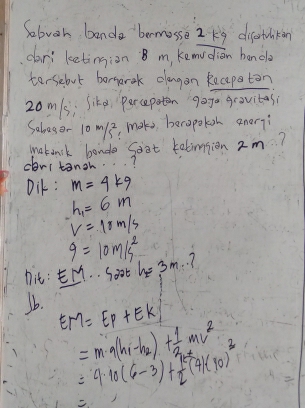 Sebuah benda bermassa 2 kg dijatuhkan
dari ketinggian 8 m, kemudian benda
tersebut bergerak dengan kecepatan
20 m/s, jika percepatan gaya gravitasi
Sebesar 10 m/s², maka berapakah energi
mekanik benda saat ketinggian 2 m..?
dari tanah...?
Dik : m = 4 kg
h₁ = 6 m
v = 10 m/s
g = 10 m/s²
Dit : EM.. saat h₂ = 3 m..?
Jb.
EM = Ep + EK
= m.g(h1-h2) + 1/2 mv²
= 4.10(6-3) + 1/2 (4)(10)²
=